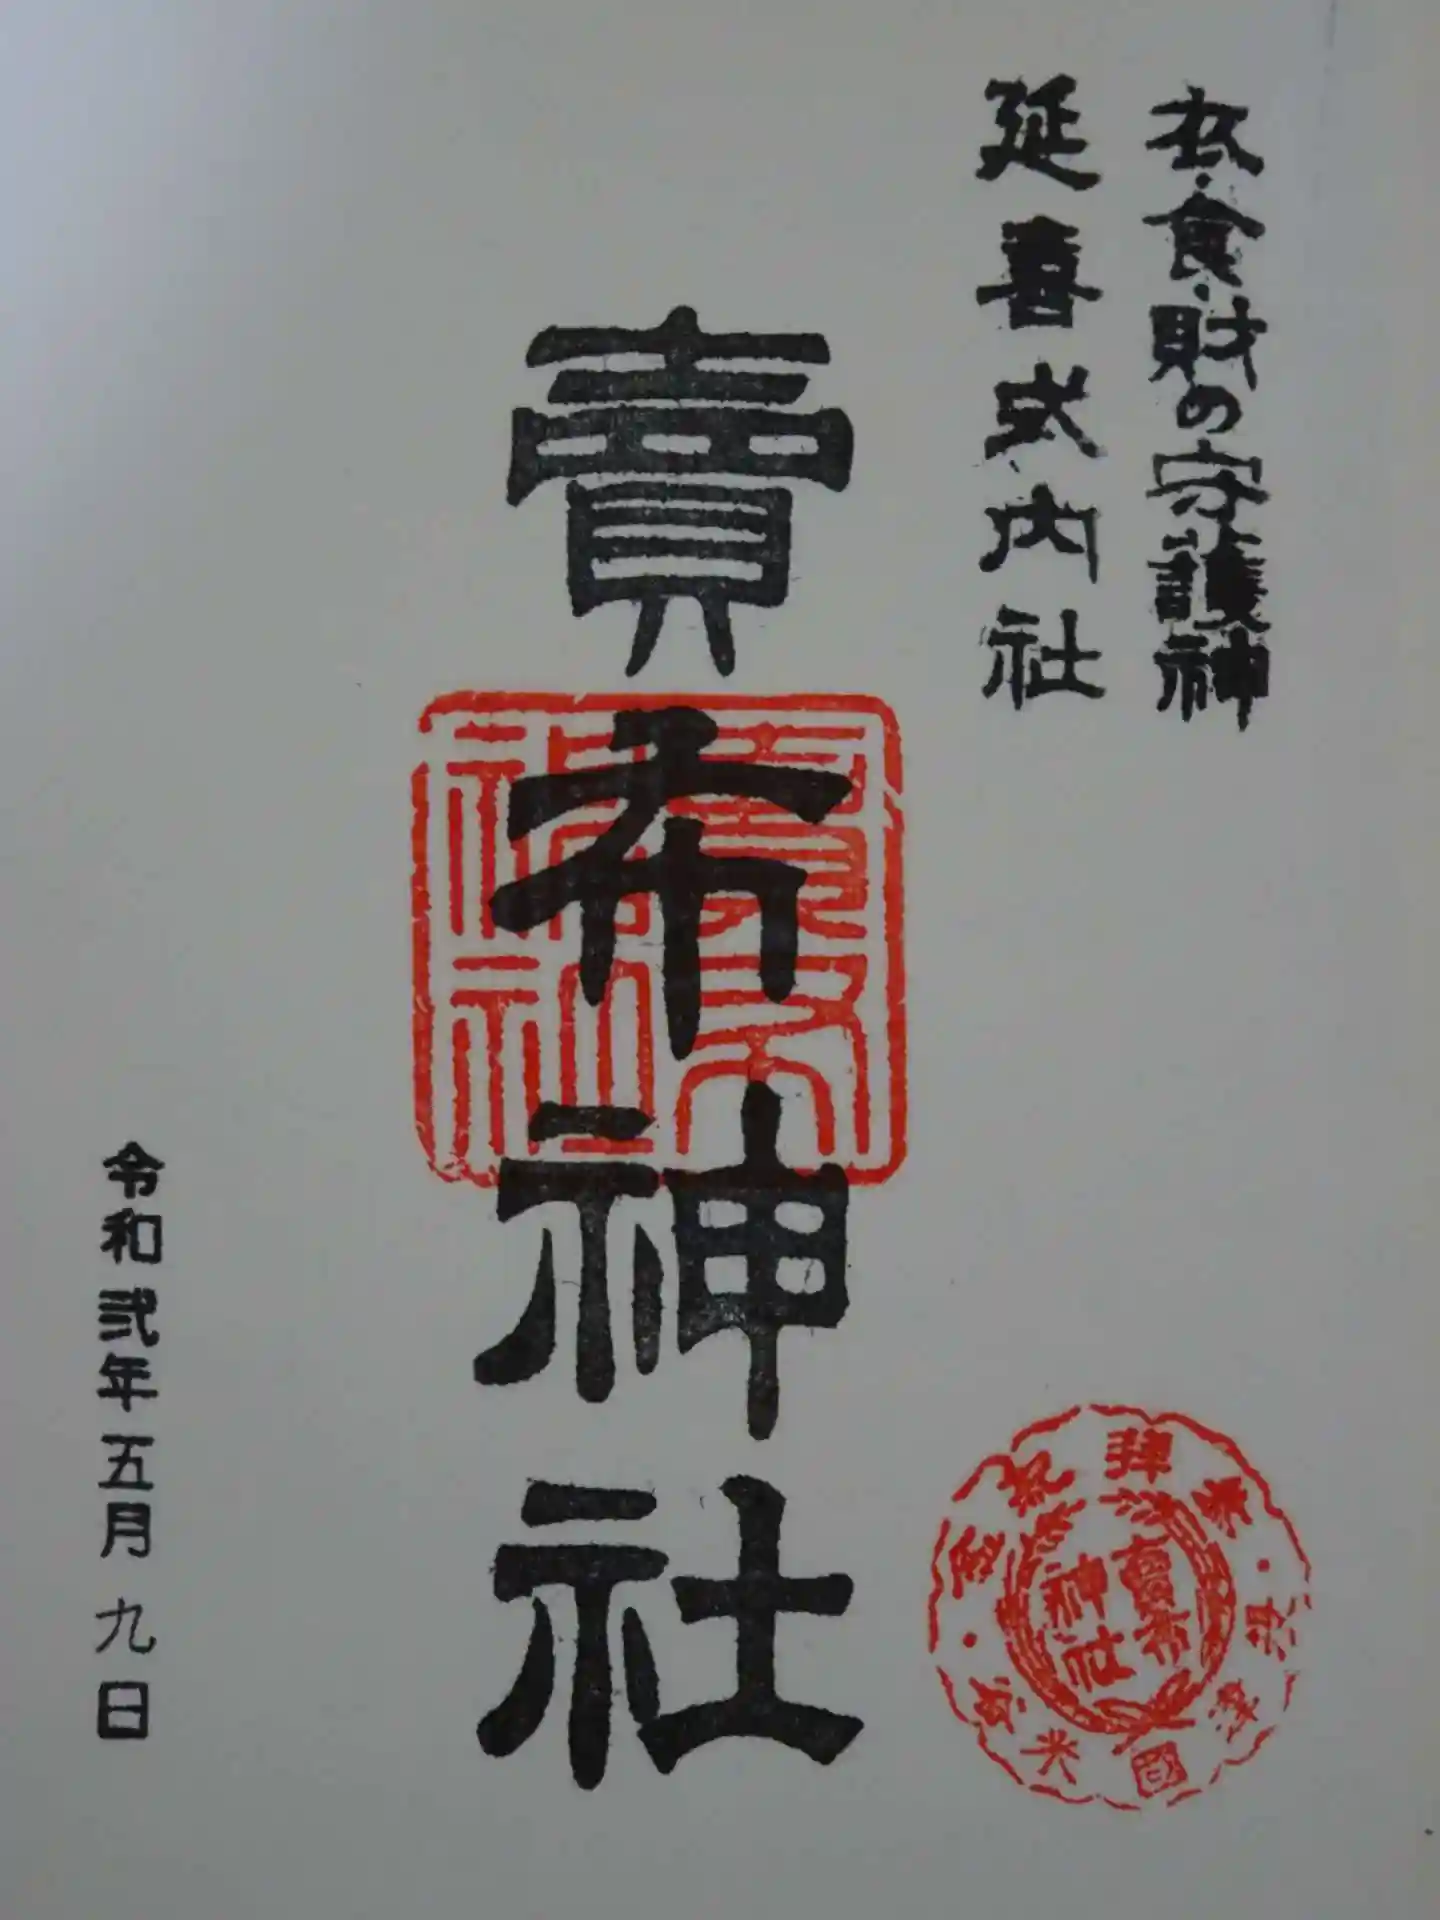 衣・食・財の守護神
延喜式内社
賣布神社
賣布神社
賣布
神社
令和弐年五月九日